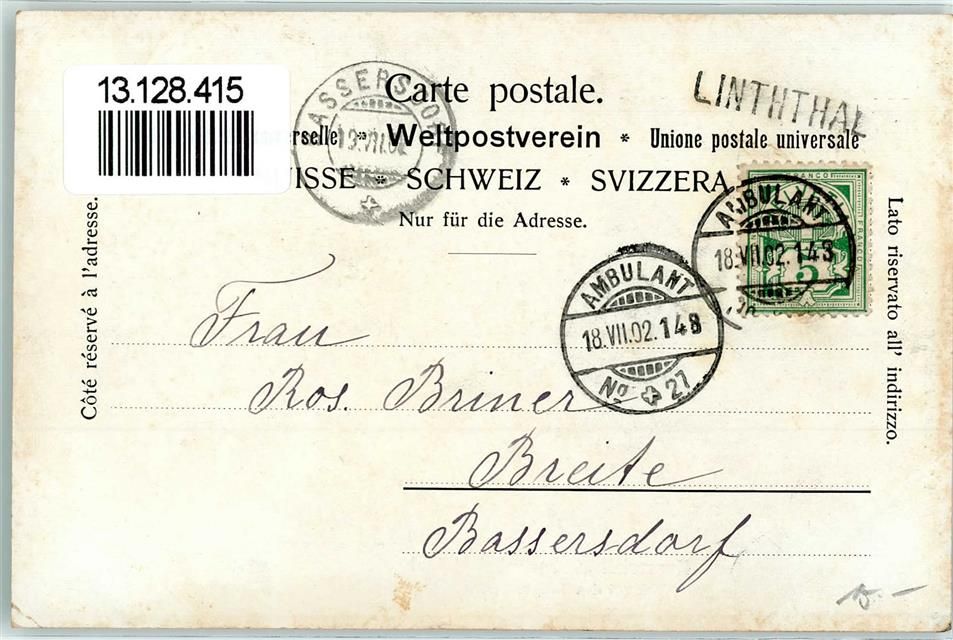 13.128.415
Carte postale.
LINTHTHAL
Weltpostverein * Unione postale universale
SCHWEIZ * SVIZZERA
Nur für die Adresse.
Côté réservé à l'adresse.
Lato riservato all' indirizzo.
FRANCO
5
AMBULANT
18.VII.02.148
AMBULANT
18.VII.02.148
No 27
Frau
Ros. Briner
Breite
Bassersdorf